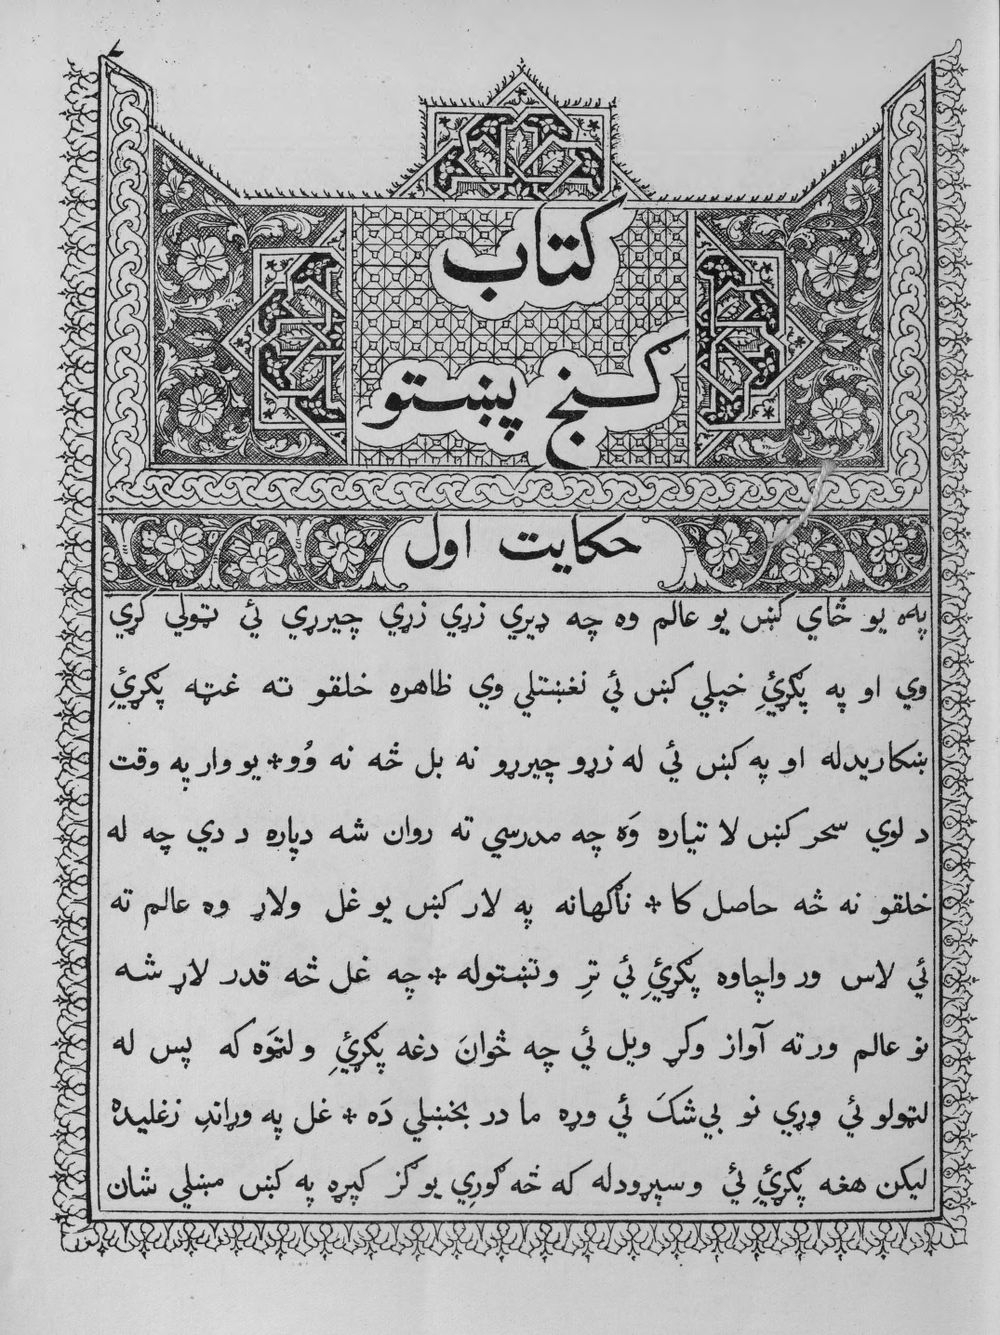 کتاب
گنج پښتو
حکایت اول
په یو ځاي کښ یو عالم وه چه ډیري زړي زړي چیرړي ئي ټولي کړي
وي او په پګړئِ خپلي کښ ئي نغښتلي وي ظاهره خلقو ته غټه پګړئِ
ښکاریدله او په کښ ئي له زړو چیرړو نه بل څه نه وُو ❊ یو وار په وقت
د لوي سحر کښ لا تیاره وَه چه مدرسي ته روان شه دپاره د دي چه له
خلقو نه څه حاصل کا ❊ ناګهانه په لار کښ یو غل ولاړ وه عالم ته
ئي لاس ور واچاوه پګړئِ ئي ترِ وتښتوله ❊ چه غل څه قدر لاړ شه
نو عالم ورته آواز وکړ ویل ئي چه ځوانَ دغه پګړئِ ولټوَه که پس له
لټولو ئي وړي نو بي شکَ ئي وړه ما در بخښلي دَه ❊ غل په وړاندِ زغلیده
لیکن هغه پګړئِ ئي وسپړودله که څه ګوري یو ګز کپړه په کښ مښلي شان